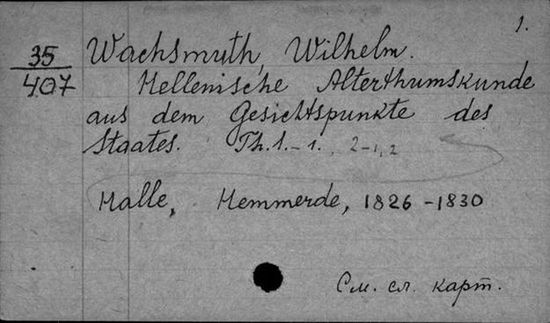 1.
35 Wachsmuth, Wilhelm.
407 Hellenische Alterthumskunde
aus dem Gesichtspunkte des
Staates. Th. 1. - 1. 2-1,2
Halle, Hemmerde, 1826 - 1830
См. сл. карт.